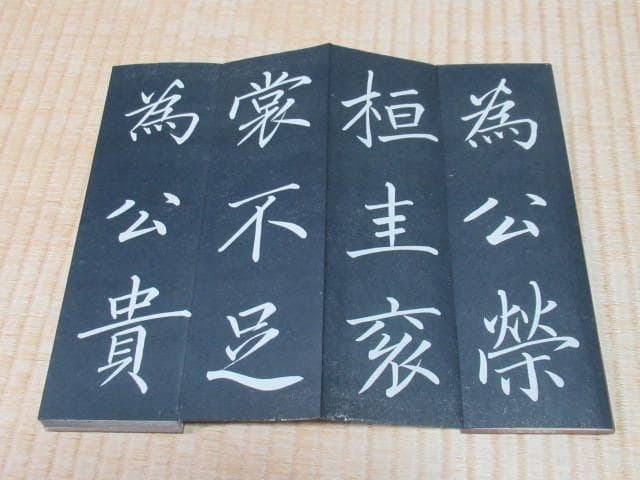 為公榮
桓圭衮
裳不足
為公貴